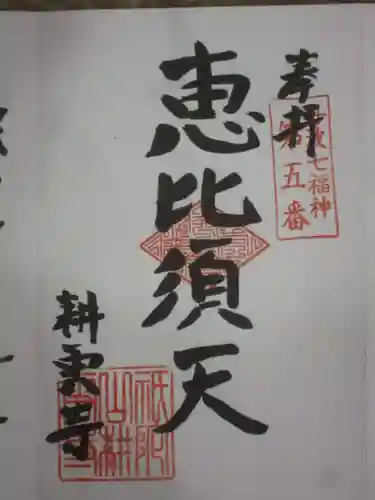 奉拝
七福神
第五番
恵比須天
耕雲寺